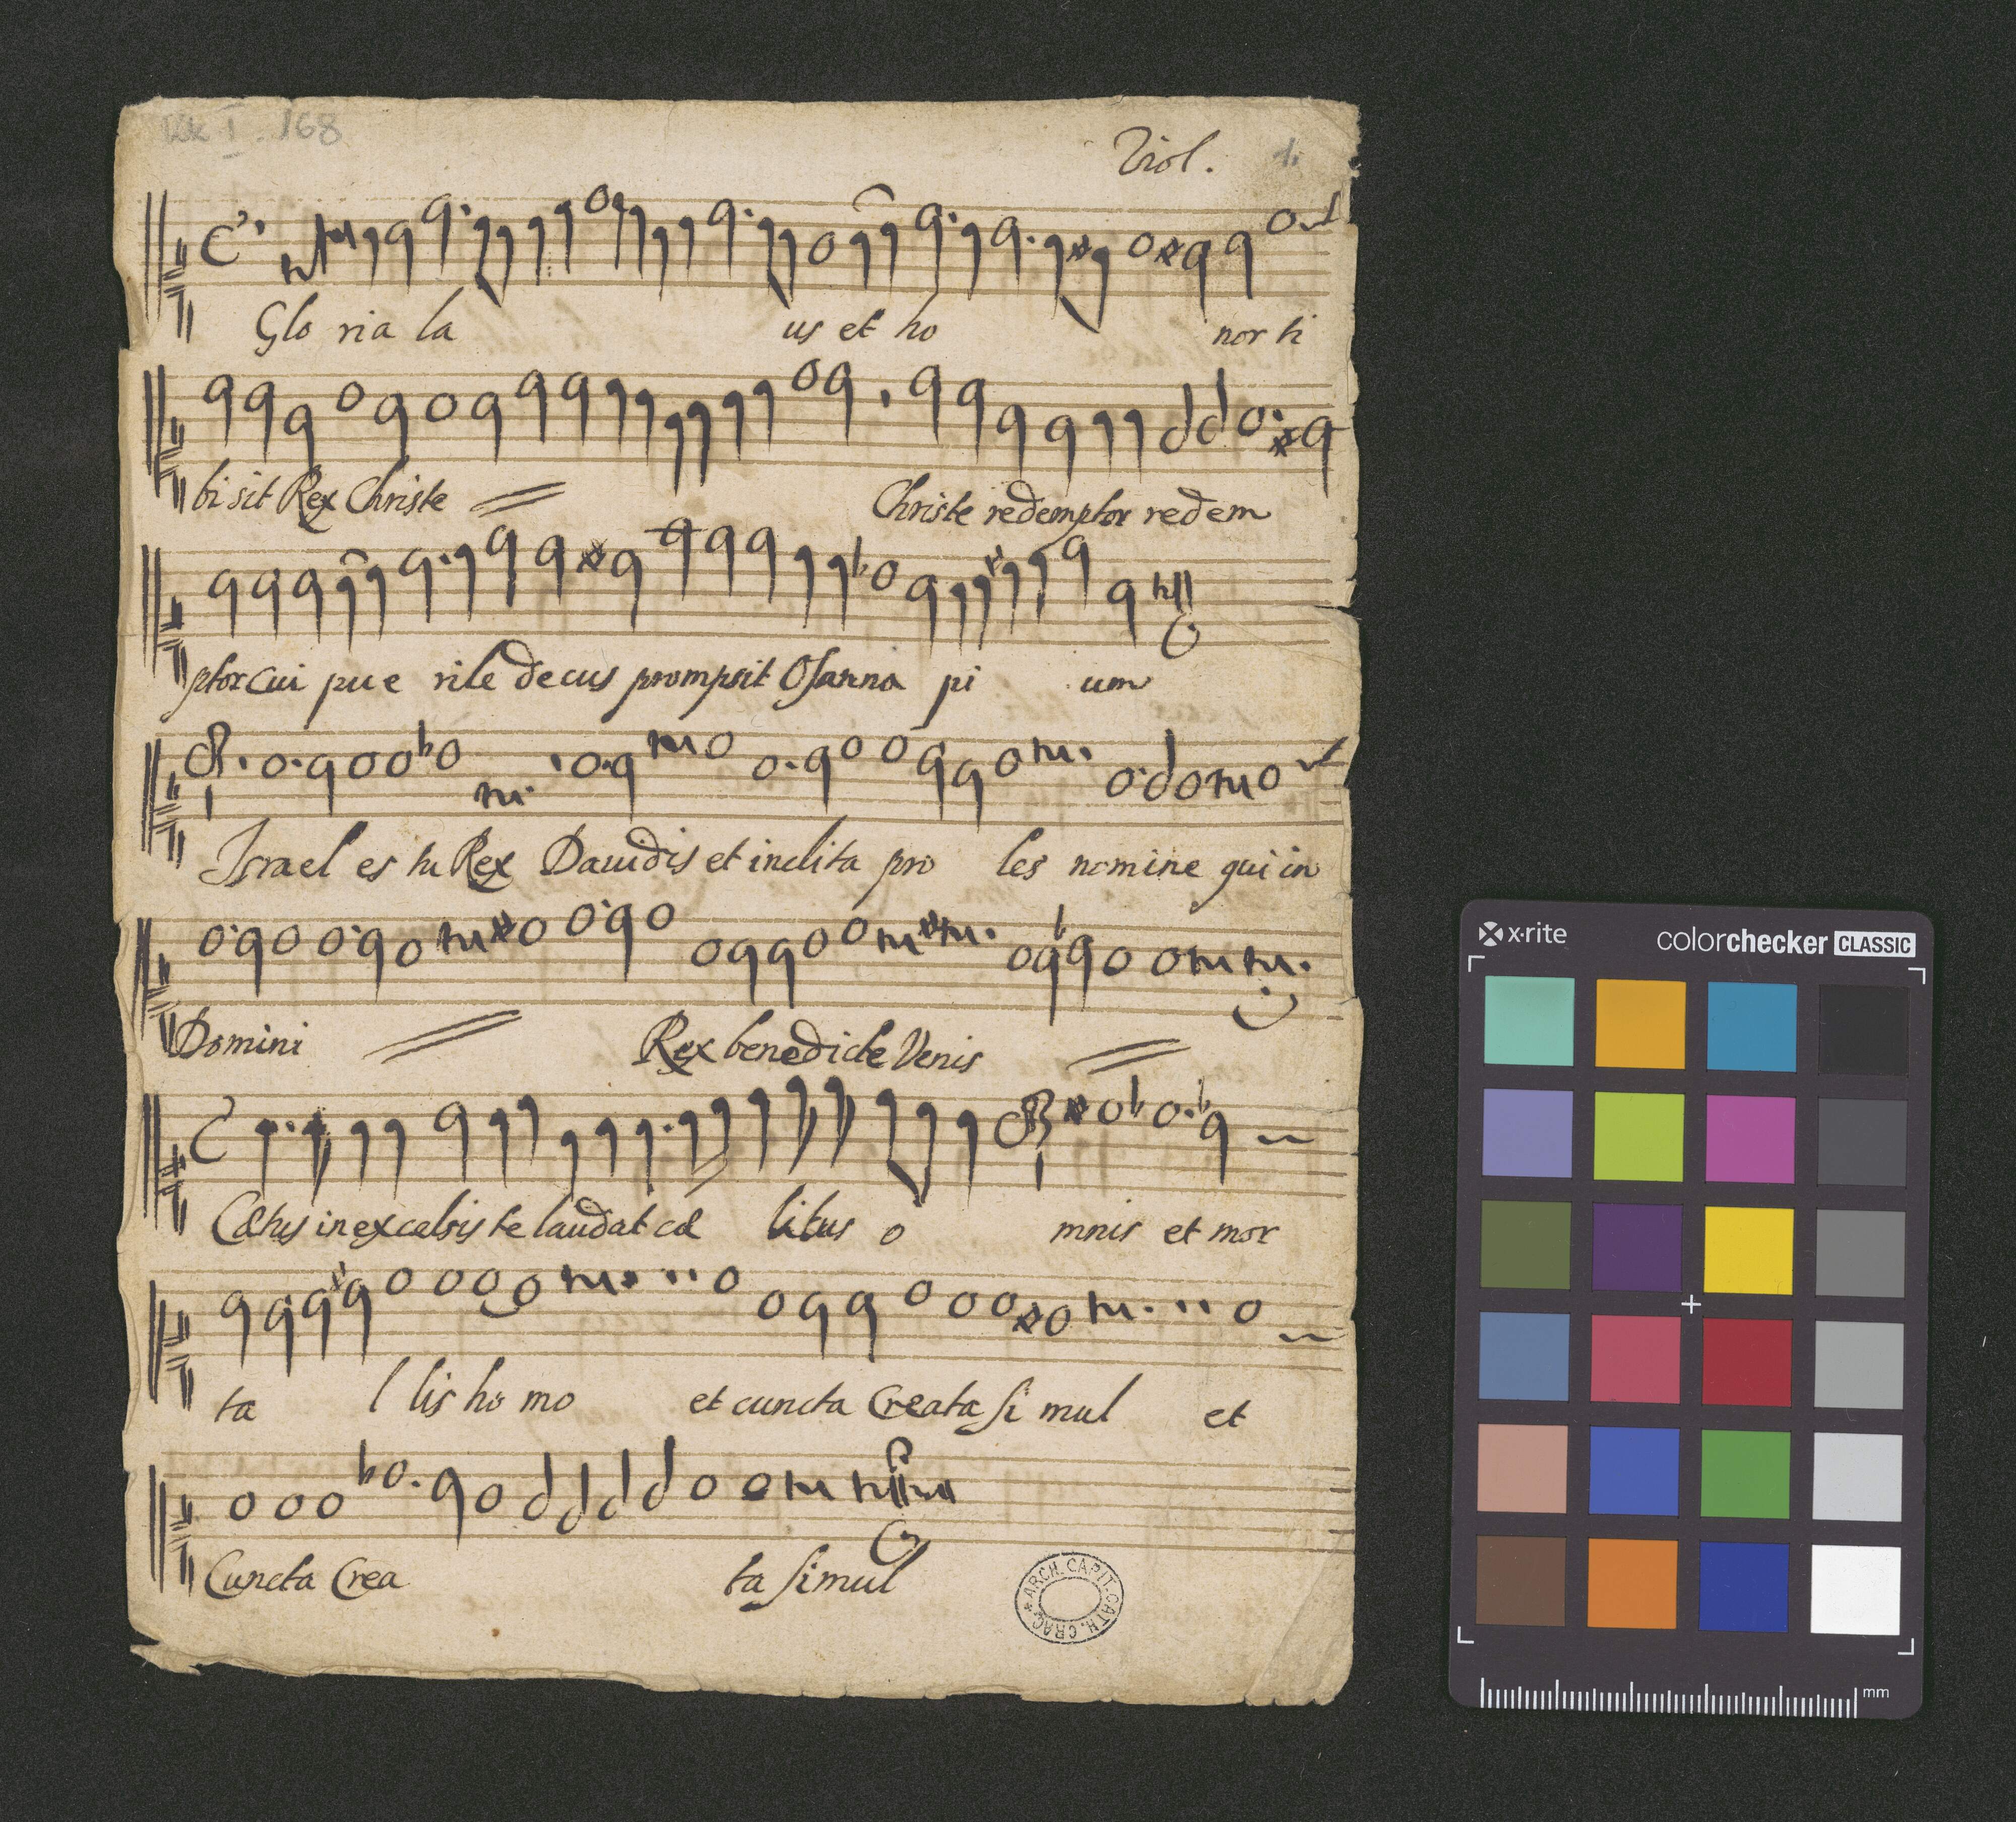 Kk I. 168
Viol. 1.
Glo ria la us et ho nor ti
bi sit Rex Christe Christe redemptor redem
ptor cui pue rile decus prompsit Osanna pi um
Israel es tu Rex Dauidis et inclita pro les nomine qui in
Domini Rex benedicte Venis
Cætus in excelsis te laudat cæ litus o mnis et mor
ta l lis ho mo et cuncta Creata si mul et
Cuncta Crea ta simul
ARCH. CAPIT. CATH. CRAC.
x-rite colorchecker CLASSIC
mm